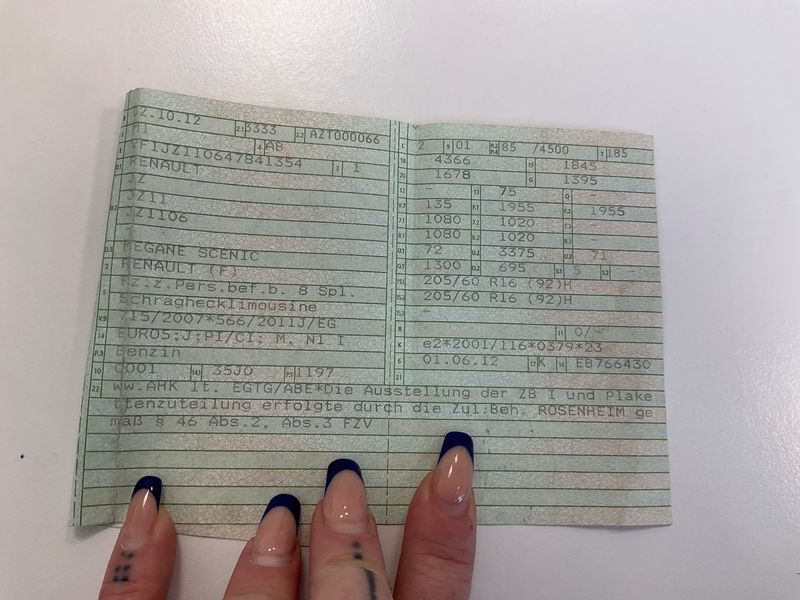 2.10.12 2.1 3333 2.2 AZT000066
M1 4 AB
VF1JZ110647841354 3 1
RENAULT
Z
JZ11
JZ1106
MEGANE SCENIC
RENAULT (F)
Fz.z.Pers.bef.b. 8 Spl.
Schräghecklimousine
715/2007*566/2011J/EG
EURO5;J;PI/CI; M, N1 I
Benzin
10 0001 14.1 35J0 P.1 1197
22 ww.AHK lt. EGTG/ABE*Die Ausstellung der ZB I und Plake
ttenzuteilung erfolgte durch die Zul.Beh. ROSENHEIM ge
mäß § 46 Abs.2, Abs.3 FZV
L 2 9 01 P.2 P.4 85 /4500 T 185
18 4366 19 1845
20 1678 G 1395
12 - 13 75 Q -
V.7 135 F.1 1955 F.2 1955
7.1 1080 7.2 1020 7.3 -
8.1 1080 8.2 1020 8.3 -
U.1 72 U.2 3375 U.3 71
O.1 1300 O.2 695 S.1 5 S.2 -
15.1 205/60 R16 (92)H
15.2 205/60 R16 (92)H
15.3 -
R 11 0/-
K e2*2001/116*0379*23
6 01.06.12 17 K 16 EB766430
21